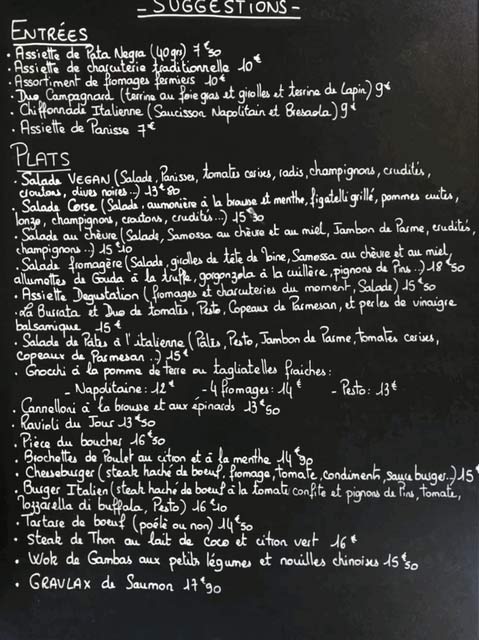 - SUGGESTIONS -
ENTRÉES
• Assiette de Pata Negra (40grs) 7€50
• Assiette de charcuterie traditionnelle 10€
• Assortiment de fromages fermiers 10€
• Duo Campagnard (terrine au foie gras et girolles et terrine de Lapin) 9€
• Chiffonnade Italienne (Saucisson Napolitain et Bresaola) 9€
• Assiette de Panisse 7€
PLATS
• Salade VEGAN (Salade, Panisses, tomates cerises, radis, champignons, crudités,
croutons, olives noires...) 13€80
• Salade Corse (Salade, aumonière à la brousse et menthe, figatelli grillé, pommes cuites,
lonzo, champignons, croutons, crudités...) 15€30
• Salade au chèvre (Salade, Samossa au chèvre et au miel, Jambon de Parme, crudités,
champignons...) 15€10
• Salade fromagère (Salade, girolles de tête de Moine, Samossa au chèvre et au miel,
allumettes de Gouda à la truffe, gorgonzola à la cuillère, pignons de Pins...) 18€50
• Assiette Degustation (fromages et charcuteries du moment, Salade) 15€50
• La Burrata et Duo de tomates, Pesto, Copeaux de Parmesan, et perles de vinaigre
balsamique 15€
• Salade de Pâtes à l'italienne (Pâtes, Pesto, Jambon de Parme, tomates cerises,
copeaux de Parmesan...) 15€
• Gnocchi à la pomme de terre ou tagliatelles fraiches:
- Napolitaine: 12€ - 4 fromages: 14€ - Pesto: 13€
• Cannelloni à la brousse et aux épinards 13€50
• Ravioli du Jour 13€50
• Pièce du boucher 16€50
• Brochettes de Poulet au citron et à la menthe 14€90
• Cheeseburger (steak haché de boeuf, fromage, tomate, condiments, sauce burger...) 15€
• Burger Italien (steak haché de boeuf à la tomate confite et pignons de Pins, tomate,
Mozzarella di buffala, Pesto) 16€10
• Tartare de boeuf (poêlé ou non) 14€50
• Steak de Thon au lait de coco et citron vert 16€
• Wok de Gambas aux petits légumes et nouilles chinoises 15€50
• GRAVLAX de Saumon 17€90